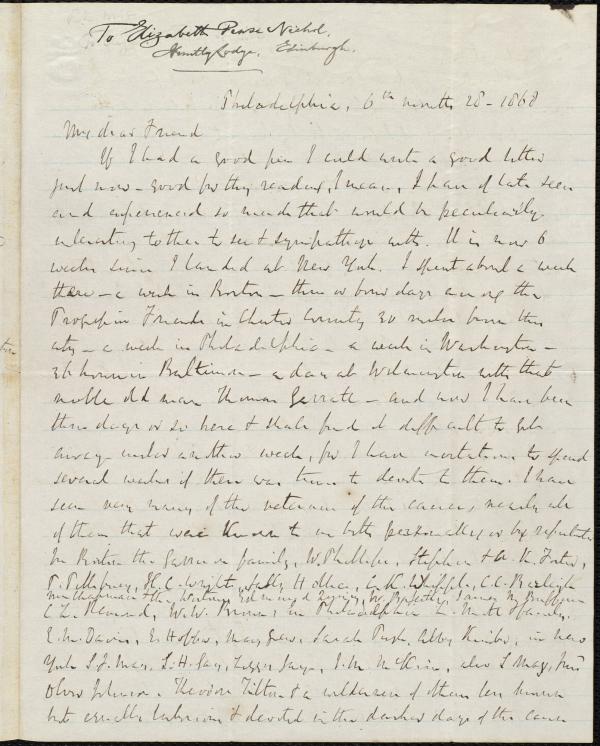 To Elizabeth Pease Nichol,
Huntly Lodge, Edinburgh.
Philadelphia, 6th month 28 - 1868
My dear Friend
If I had a good pen I could write a good letter
just now - good for thy reading, I mean, I have of late seen
and experienced so much that would be peculiarly
interesting to thee to see & sympathize with. It is now 6
weeks since I landed at New York. I spent about a week
there - a week in Boston - three or four days among the
Progressive Friends in Chester County 30 miles from this
city - a week in Philadelphia - a week in Washington -
36 hours in Baltimore - a day at Wilmington with that
noble old man Thomas Garrett - and now I have been
three days or so here & shall find it difficult to get
away under another week, for I have invitations to spend
several weeks if there was time to devote to them. I have
seen very many of the veterans of the cause, nearly all
of them that were known to me both personally or by reputation
In Boston the Garrison family, W. Phillips, Stephen & A. K. Foster,
P. Pillsbury, H. C. Wright, Sally Holley, C. K. Whipple, C. C. Burleigh
Mrs Chapman & the Westons, Edmund Quincy, James N. Buffum
C. L. Remond, W. W. Brown; in Philadelphia L. Mott & family,
E. M. Davis, Mary Grew, Sarah Pugh, Abby Kimber, in New
York S. J. May, S. H. Gay, J. M. McKim, also S. May, Junr
Oliver Johnson, Theodore Tilton & a wilderness of others less known
but equally laborious & devoted in the darker days of the cause